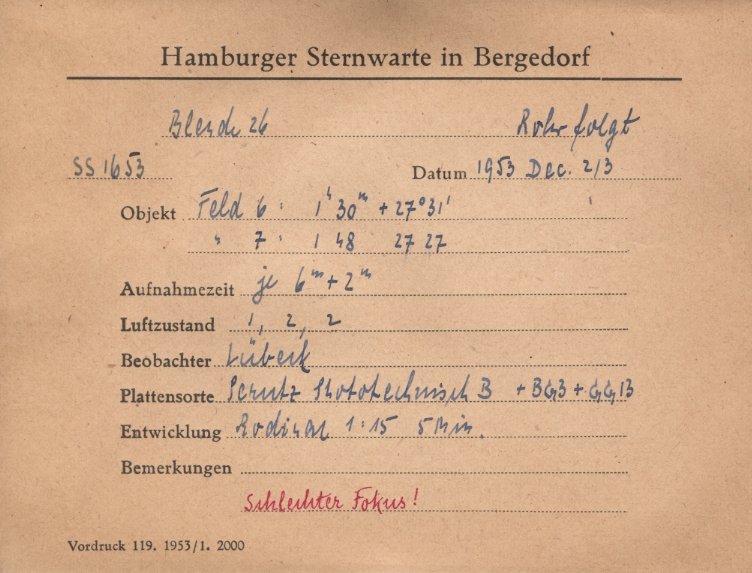 Hamburger Sternwarte in Bergedorf
Blende 26 Rohr folgt
SS 1653 Datum 1953 Dec. 2/3
Objekt Feld 6 : 1ʰ 30ᵐ + 27° 31'
" 7 : 1 48 27 27
Aufnahmezeit je 6ᵐ + 2ᵐ
Luftzustand 1, 2, 2
Beobachter Lübeck
Plattensorte Perutz Phototechnisch B + BG3 + GG13
Entwicklung Rodinal 1:15 5 Min.
Bemerkungen
Schlechter Fokus!
Vordruck 119. 1953/1. 2000